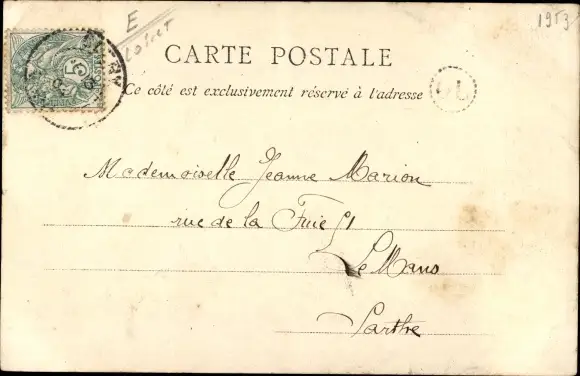 E
Loiret
1903
5
CARTE POSTALE
Ce côté est exclusivement réservé à l'adresse
Mademoiselle Jeanne Marion
rue de la Fuie 51
Le Mans
Sarthe